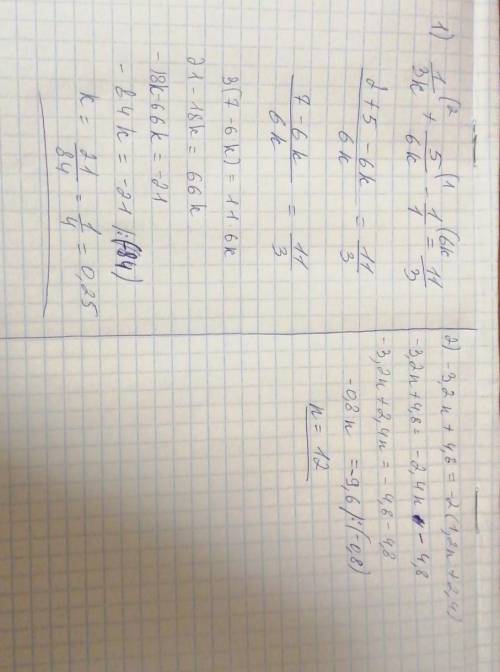 1) 1/3k (2 + 5/6k (1 - 1/1 (6k = 11/3
2+5-6k/6k = 11/3
7-6k/6k = 11/3
3(7-6k) = 11 6k
21-18k = 66k
-18k-66k = -21
-84k = -21 |:(-84)
k = 21/84 = 1/4 = 0,25
2) -3,2n + 4,8 = -2(1,2n+2,4)
-3,2n+4,8 = -2,4n - 4,8
-3,2n+2,4n = -4,8-4,8
-0,8n = -9,6 |:(-0,8)
n = 12